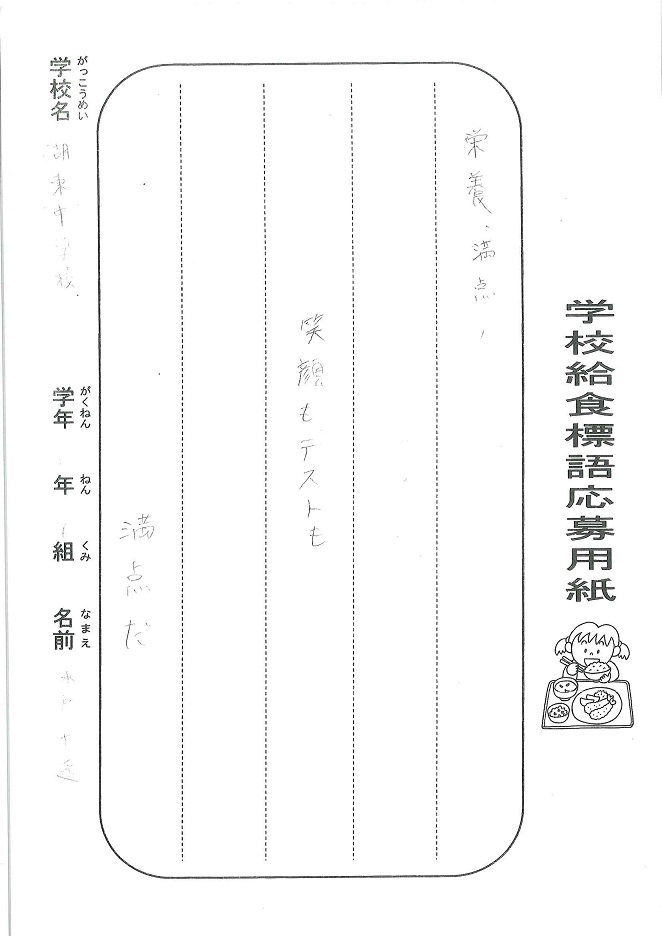 学校給食標語応募用紙
栄養、満点、
笑顔もテストも
満点だ
がっこうめい
学校名 湖東中学校
がくねん
学年
ねん
年
くみ
組
なまえ
名前